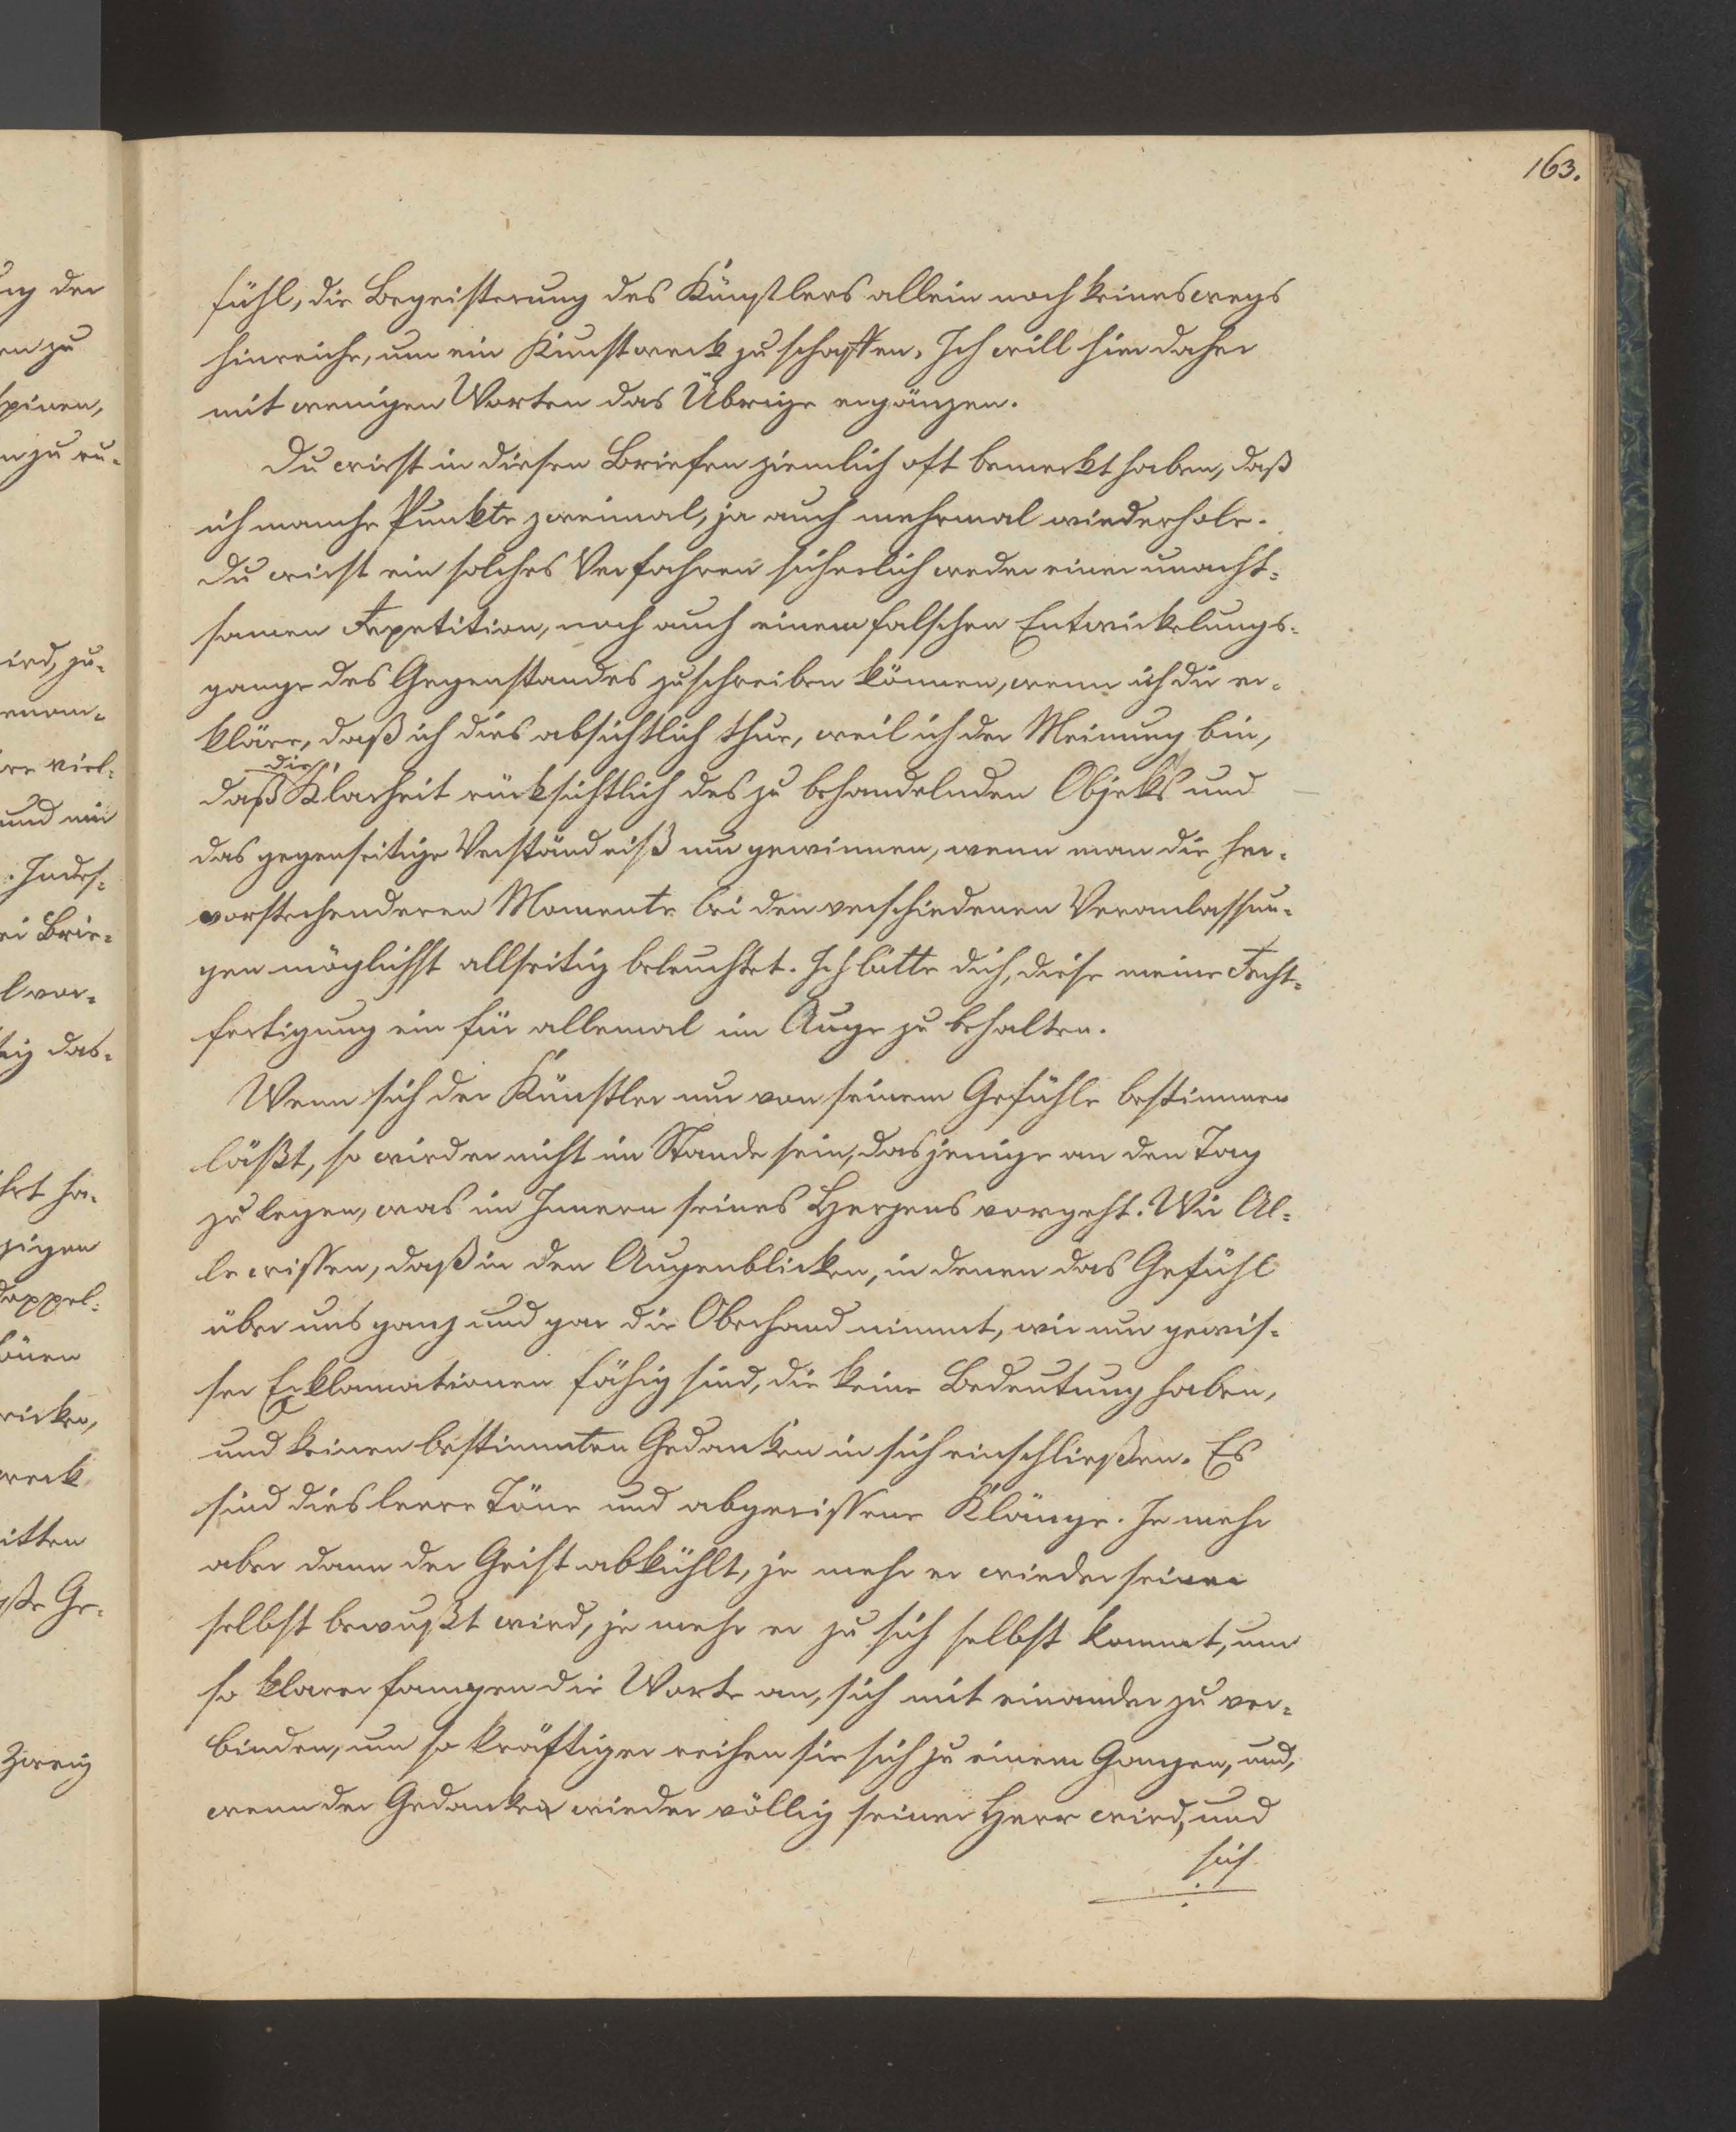 163.
fühl, die Begeisterung des Künstlers allein noch keineswegs
hinreiche, um ein Kunstwerk zu schaffen. Ich will hier daher
mit wenigen Worten das Übrige ergänzen.
Du wirst in diesen Briefen ziemlich oft bemerkt haben, daß
ich manche Punkte zweimal, ja auch mehrmal wiederhole.
Du wirst ein solches Verfahren sicherlich weder einer unacht-
samen Repetition, noch auch einem falschen Entwickelungs-
gange des Gegenstandes zuschreiben können, wenn ich dir er-
kläre, daß ich dies absichtlich thue, weil ich der Meinung bin,
die
daß Klarheit rücksichtlich des zu behandelnden Objekts und
das gegenseitige Verständniß nur gewinnen, wenn man die her-
vorstechenderen Momente bei den verschiedenen Veranlassun-
gen möglichst allseitig beleuchtet. Ich bitte dich, diese meine Recht-
fertigung ein für allemal im Auge zu behalten.
Wenn sich der Künstler nur von seinem Gefühle bestimmen
läßt, so wird er nicht im Stande sein, dasjenige an den Tag
zu legen, was im Innern seines Herzens vorgeht. Wir Al-
le wissen, daß in den Augenblicken, in denen das Gefühl
über uns ganz und gar die Oberhand nimmt, wir nur gewis-
ser Exklamationen fähig sind, die keine Bedeutung haben,
und keinen bestimmten Gedanken in sich einschließen. Es
sind dies leere Töne und abgerissene Klänge. Je mehr
aber dann der Geist abkühlt, je mehr er wieder seiner
selbst bewußt wird, je mehr er zu sich selbst kommt, um
so klarer fangen die Worte an, sich mit einander zu ver-
binden, um so kräftiger reihen sie sich zu einem Ganzen, und,
wenn der Gedanke wieder völlig seiner Herr wird, und
sich